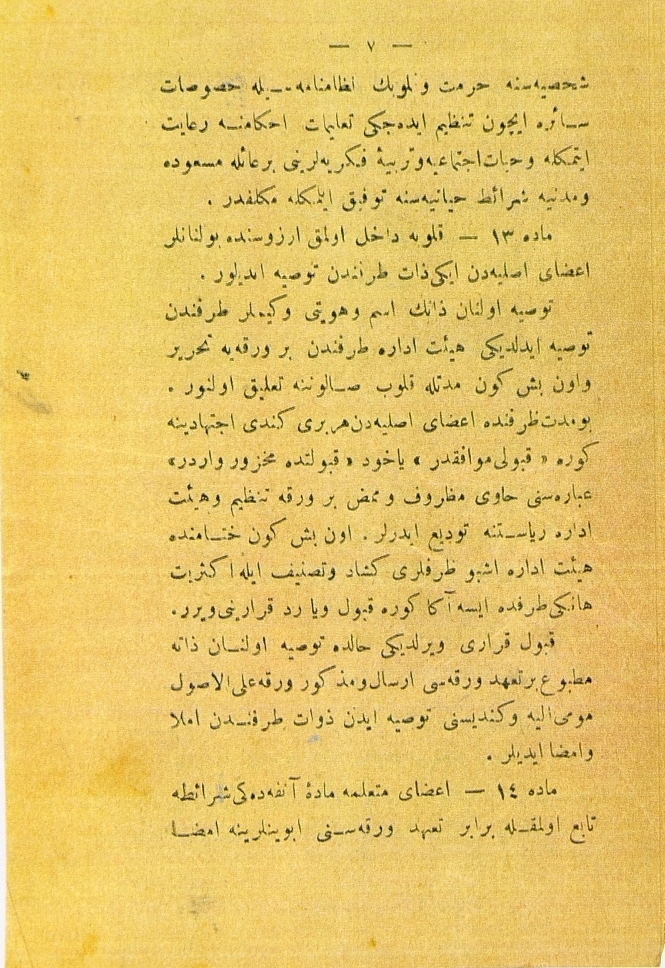 — ٧ —
شخصیه‌سنه حرمت و قلوبك نظامنامه‌سیله خصوصات
سائره ایچون تنظیم ایده‌جکی تعلیمات احکامنه رعایت
ایتمکله وحیات اجتماعیه وتربیهٔ فکریه‌لرینی بر عائله مسعوده
ومدنیه شرائط حیاتیه‌سنه توفیق ایتمکله مکلفدر .
ماده ١٣ — قلوبه داخل اولمق آرزوسنده بولنانلر
اعضای اصلیه‌دن ایکی ذات طرفندن توصیه ایدیلور .
توصیه اولنان ذاتك اسم وهویتی وکیملر طرفندن
توصیه ایدلدیکی هیئت اداره طرفندن بر ورقه‌یه تحریر
واون بش کون مدتله قلوب صالوننه تعلیق اولنور .
بومدت ظرفنده اعضای اصلیه‌دن هر بری کندی اجتهادینه
کوره « قبولی موافقدر » یاخود « قبولنده محذور واردر »
عباره‌سنی حاوی مظروف و ممضی بر ورقه تنظیم وهیئت
اداره ریاستنه تودیع ایدرلر . اون بش کون ختامنده
هیئت اداره اشبو ظرفلری کشاد وتصنیف ایله اکثریت
هانکی طرفده ایسه آکا کوره قبول ویا رد قرارینی ویرر .
قبول قراری ویرلدیکی حالده توصیه اولنان ذاته
مطبوع بر تعهد ورقه‌سی ارسال ومذکور ورقه علی‌الاصول
مومی‌الیه وکندیسنی توصیه ایدن ذوات طرفندن املا
وامضا ایدیلر .
ماده ١٤ — اعضای متعلمه مادهٔ آنفه‌ده‌کی شرائطه
تابع اولمقله برابر تعهد ورقه‌سنی ابوینلرینه امضا